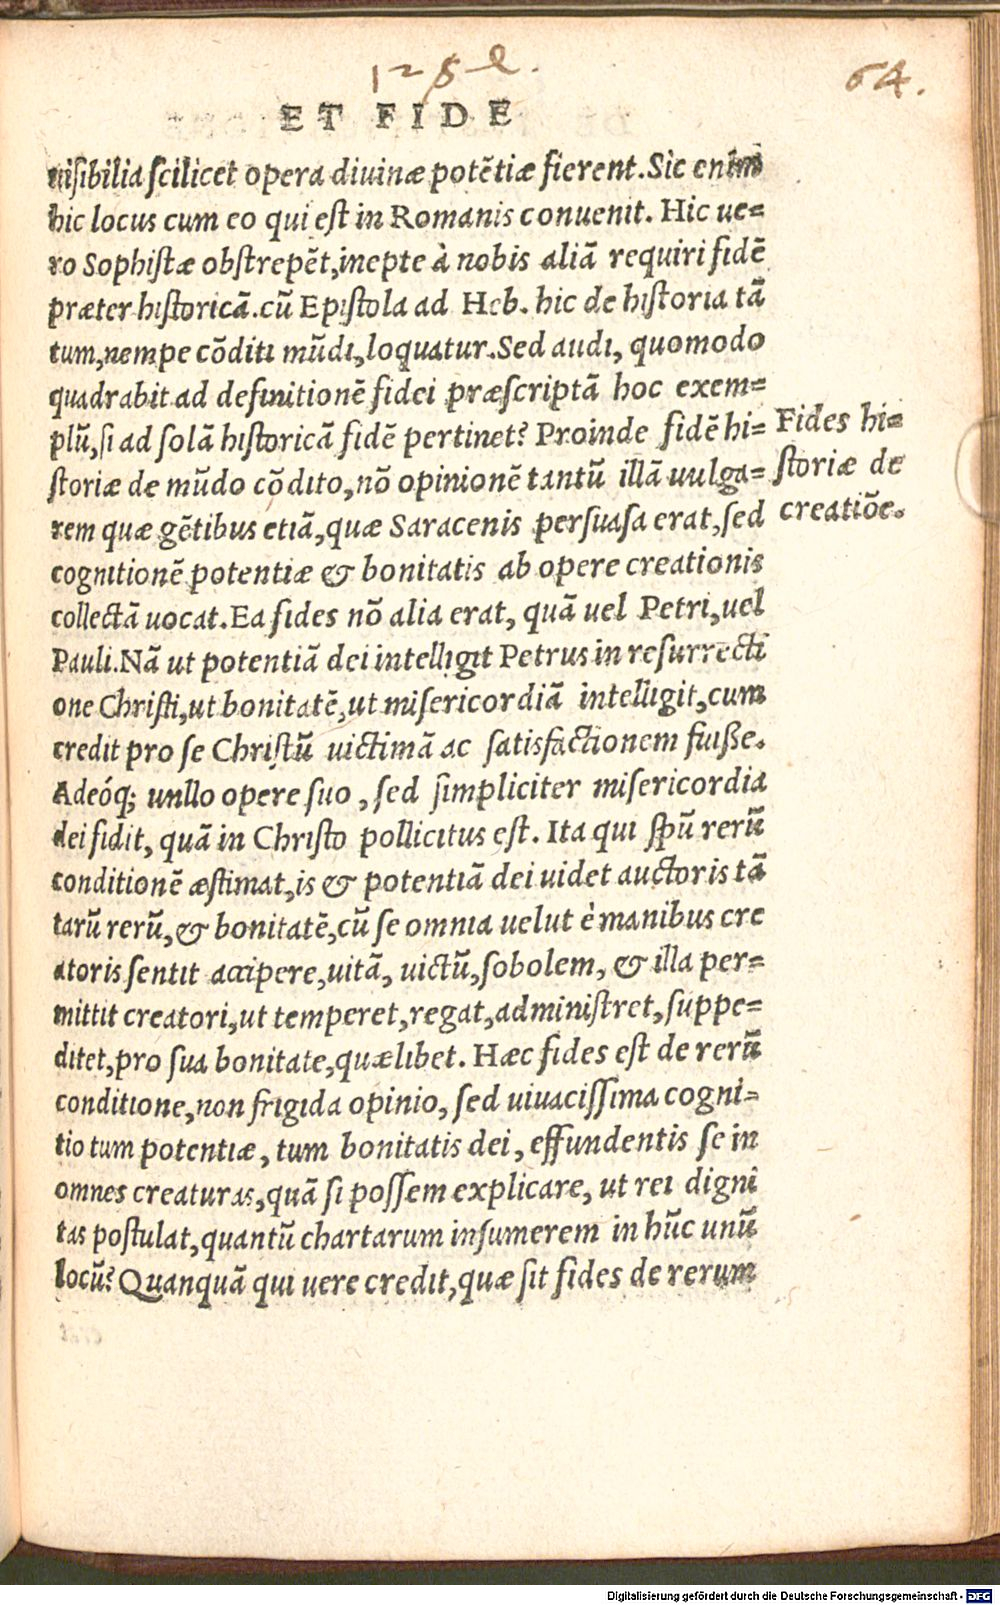 64.
ET FIDE
uisibilia scilicet opera diuinæ potẽtiæ fierent. Sic enim
hic locus cum eo qui est in Romanis conuenit. Hic ue=
ro Sophistæ obstrepẽt, inepte à nobis aliã requiri fidẽ
præter historicã. cũ Epistola ad Heb. hic de historia tã
tum, nempe cõditi mũdi, loquatur. Sed audi, quomodo
quadrabit ad definitionẽ fidei præscriptã hoc exem=
plũ, si ad solã historicã fidẽ pertinet? Proinde fidẽ hi=
storiæ de mũdo cõdito, nõ opinionẽ tantũ illã uulga=
rem quæ gẽtibus etiã, quæ Saracenis persuasa erat, sed
cognitionẽ potentiæ & bonitatis ab opere creationis
collectã uocat. Ea fides nõ alia erat, quã uel Petri, uel
Pauli. Nã ut potentiã dei intelligit Petrus in resurrecti
one Christi, ut bonitatẽ, ut misericordiã intelligit, cum
credit pro se Christũ uictimã ac satisfactionem fuisse.
Adeóq; unllo opere suo, sed simpliciter misericordia
dei fidit, quã in Christo pollicitus est. Ita qui spũ rerũ
conditionẽ æstimat, is & potentiã dei uidet auctoris tã
tarũ rerũ, & bonitatẽ, cũ se omnia uelut è manibus cre
atoris sentit accipere, uitã, uictũ, sobolem, & illa per=
mittit creatori, ut temperet, regat, administret, suppe=
ditet, pro sua bonitate, quælibet. Hæc fides est de rerũ
conditione, non frigida opinio, sed uiuacissima cogni=
tio tum potentiæ, tum bonitatis dei, effundentis se in
omnes creaturas, quã si possem explicare, ut rei digni
tas postulat, quantũ chartarum insumerem in hũc unũ
locũ? Quanquã qui uere credit, quæ sit fides de rerum
Fides hi=
storiæ de
creatiõe.
Digitalisierung gefördert durch die Deutsche Forschungsgemeinschaft - DFG